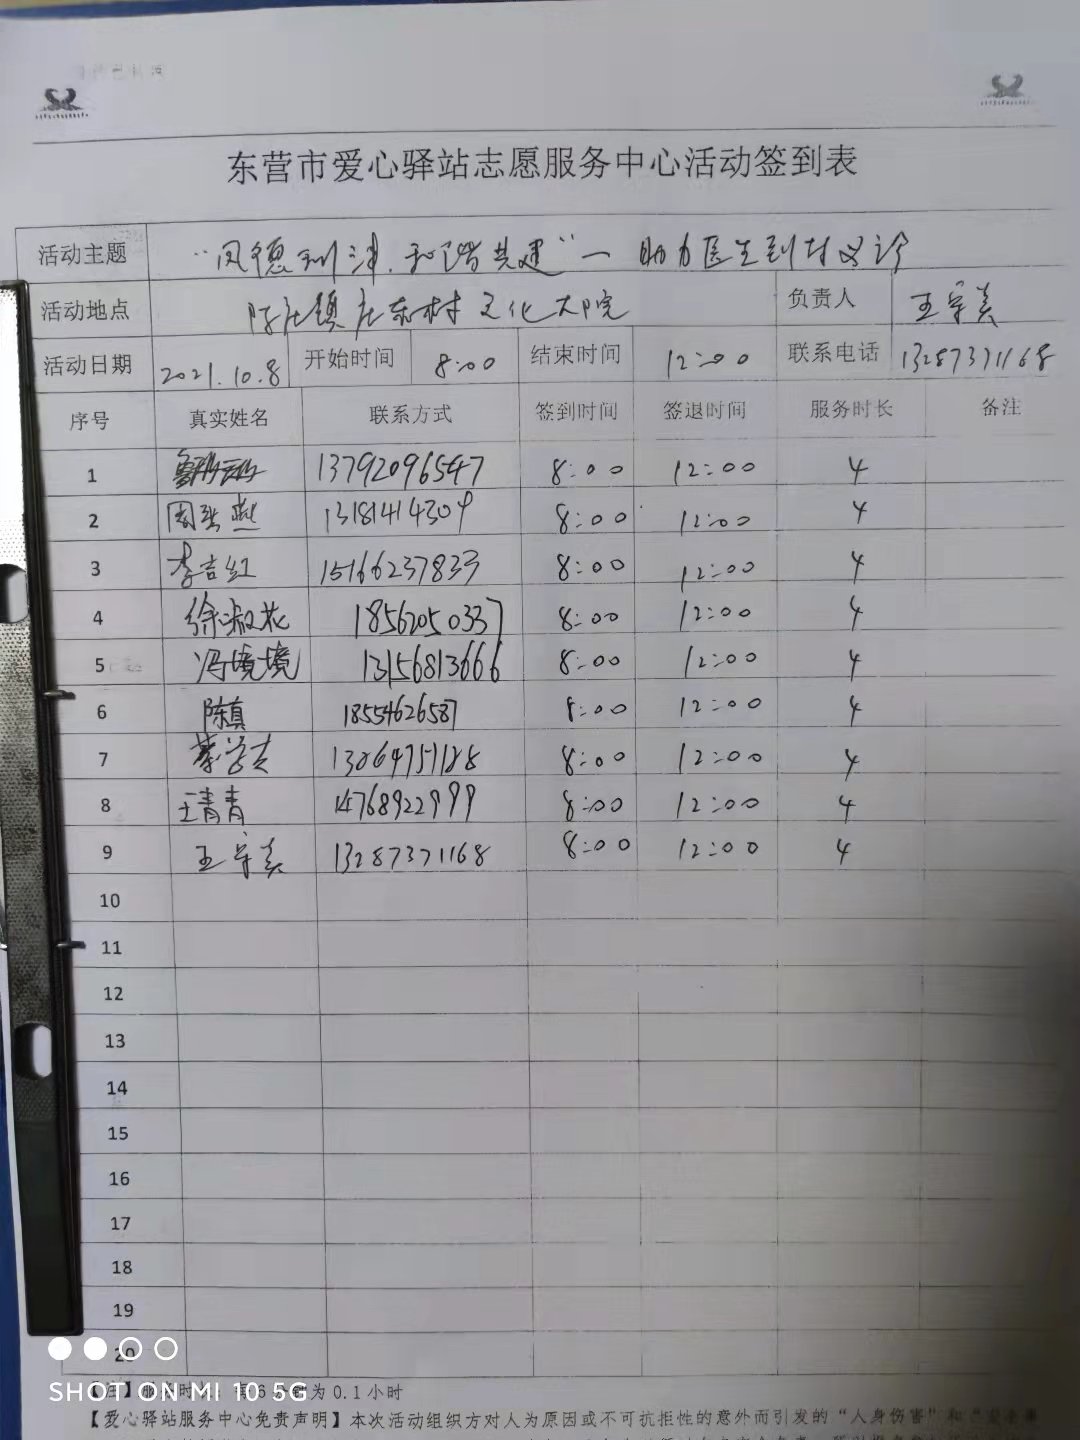 东营市爱心驿站志愿服务中心活动签到表
活动主题 "凤德利津,和谐共建"一助力医生到村义诊
活动地点 陈庄镇庄东村文化大院 负责人 王宗美
活动日期 2021.10.8 开始时间 8:00 结束时间 12:00 联系电话 13287371168
序号 真实姓名 联系方式 签到时间 签退时间 服务时长 备注
1 13792096547 8:00 12:00 4
2 周张燕 13181414309 8:00 12:00 4
3 李吉红 15166237833 8:00 12:00 4
4 徐淑花 18562050337 8:00 12:00 4
5 冯境境 13156813666 8:00 12:00 4
6 陈真 18554626587 8:00 12:00 4
7 13064751128 8:00 12:00 4
8 王青青 14768922999 8:00 12:00 4
9 王宗美 13287371168 8:00 12:00 4
10
11
12
13
14
15
16
17
18
19
20
SHOT ON MI 10 5G
为0.1小时
【爱心驿站服务中心免责声明】本次活动组织方对人为原因或不可抗拒性的意外而引发的"人身伤害"和